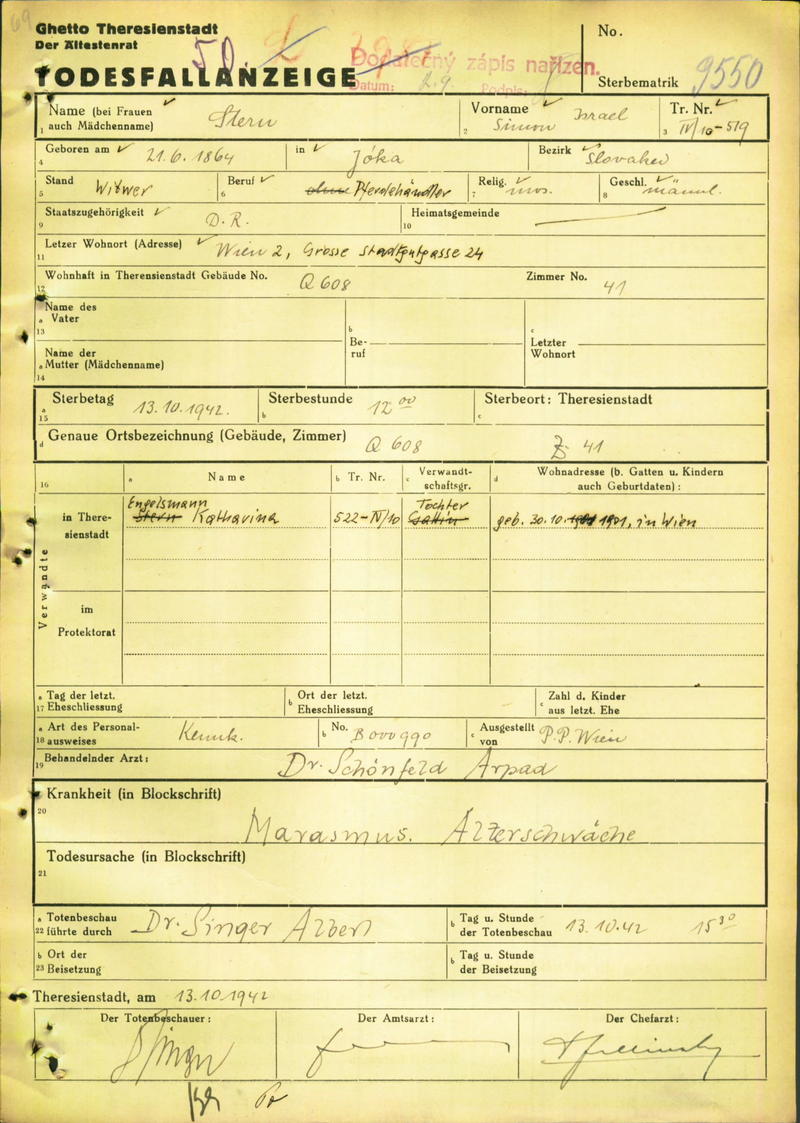 69
Ghetto Theresienstadt
Der Ältestenrat
TODESFALLANZEIGE
50.
Dodatečný zápis nařízen.
Datum: 2.9. Podpis:
No.
Sterbematrik 9550
Name (bei Frauen auch Mädchenname) Stern
1
Vorname Simon Israel
2
Tr. Nr. IV/10-519
3
Geboren am 21.6.1864 in Jóka Bezirk Slovakei
4
Stand Witwer Beruf ohne Pferdehändler Relig. mos. Geschl. männl.
5 6 7 8
Staatszugehörigkeit D.R. Heimatsgemeinde
9 10
Letzer Wohnort (Adresse) Wien 2, Grosse Stadtgutgasse 24
11
Wohnhaft in Therensienstadt Gebäude No. Q 608 Zimmer No. 41
12
Name des
a Vater
13
b Be-
ruf
c Letzter
Wohnort
Name der
a Mutter (Mädchenname)
14
Sterbetag 13.10.1942. Sterbestunde 12 00 Sterbeort: Theresienstadt
a 15 b c
d Genaue Ortsbezeichnung (Gebäude, Zimmer) Q 608 Z. 41
16 a Name b Tr. Nr. c Verwandt-
schaftsgr. d Wohnadresse (b. Gatten u. Kindern
auch Geburtdaten) :
Verwandte
in There-
sienstadt
Engelsmann
Stern Katharina 522-IV/10 Tochter
Gattin geb. 30.10. 1901, in Wien
im
Protektorat
a Tag der letzt.
17 Eheschliessung
b Ort der letzt.
Eheschliessung
c Zahl d. Kinder
aus letzt. Ehe
a Art des Personal-
18 ausweises Kennk.
b No. B 000990
c Ausgestellt
von P.P. Wien
19 Behandelnder Arzt: Dr. Schönfeld Arpad
Krankheit (in Blockschrift)
20
Marasmus. Altersschwäche
Todesursache (in Blockschrift)
21
a Totenbeschau
22 führte durch Dr. Singer Albert
b Tag u. Stunde
der Totenbeschau 13.10.42 15 30
b Ort der
23 Beisetzung
b Tag u. Stunde
der Beisetzung
Theresienstadt, am 13.10.1942
Der Totenbeschauer: Der Amtsarzt: Der Chefarzt:
Singer